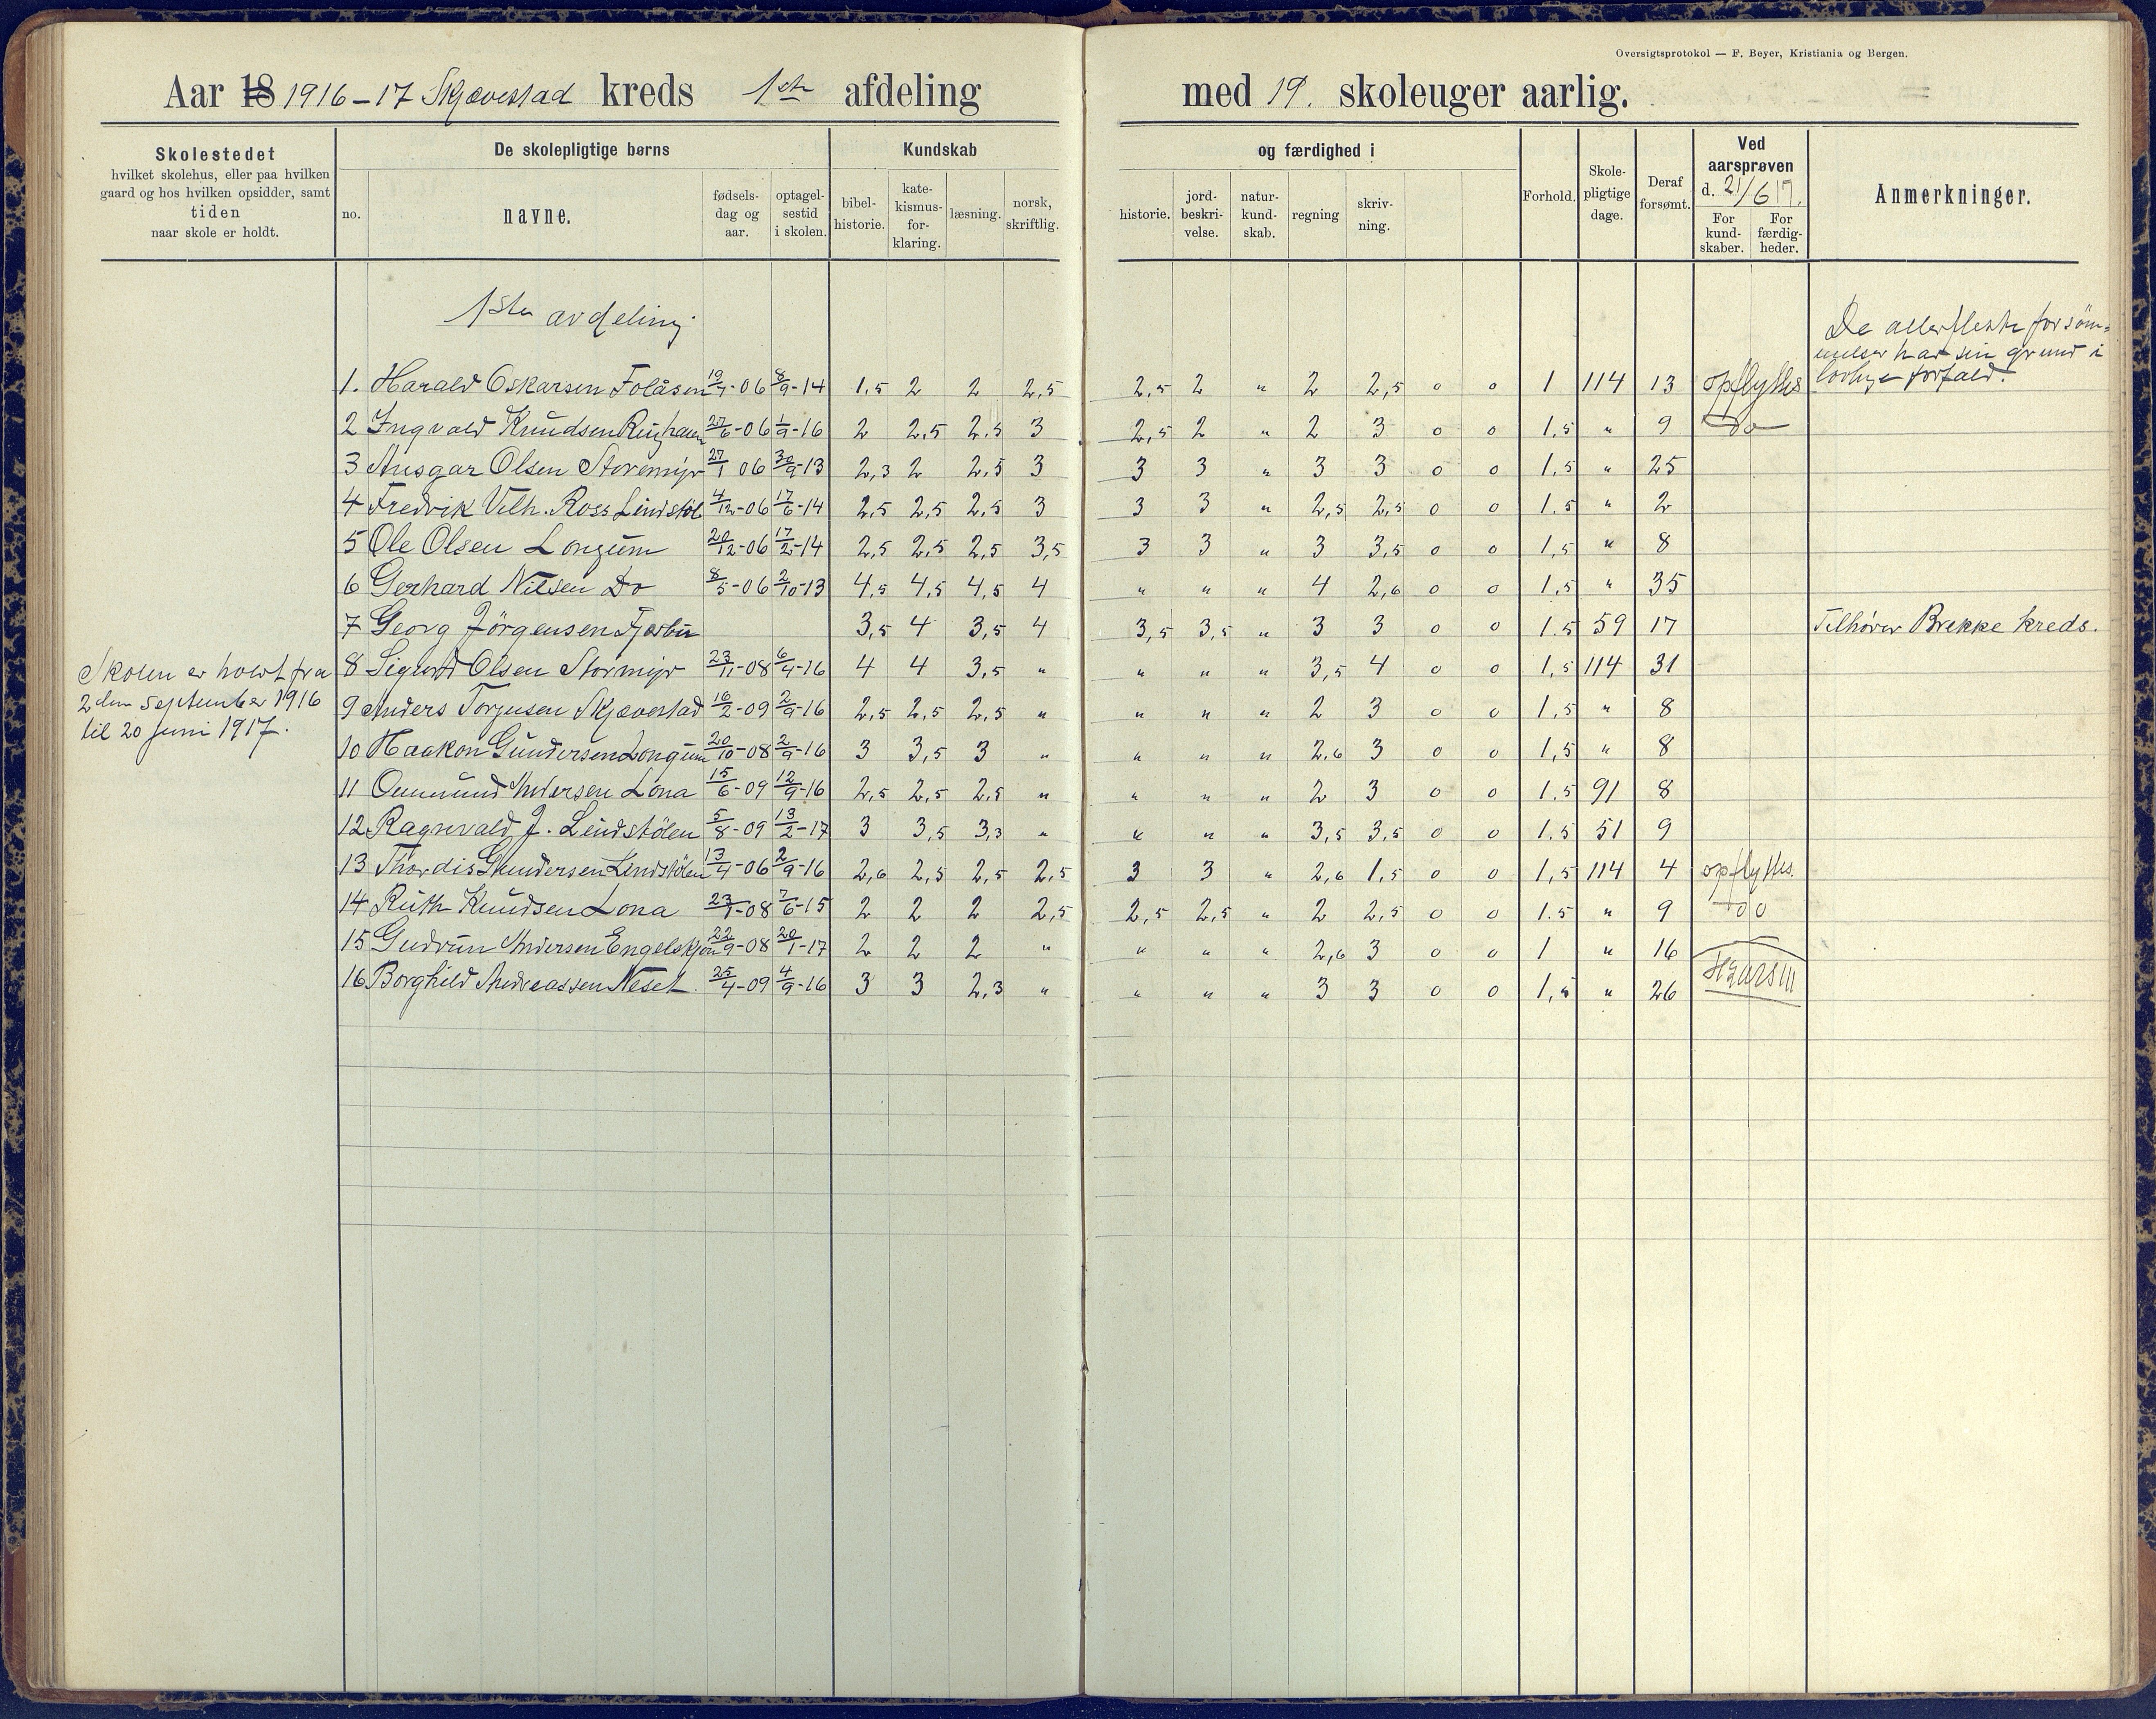 Oversigtsprotokol — F. Beyer, Kristiania og Bergen.
Aar 18 1916-17 Skjævestad kreds 1ste afdeling med 19. skoleuger aarlig.
Skolestedet
hvilket skolehus, eller paa hvilken
gaard og hos hvilken opsidder, samt
tiden
naar skole er holdt.
De skolepligtige børns
no.
navne.
fødsels-
dag og
aar.
optagel-
sestid
i skolen.
Kundskab
bibel-
historie.
kate-
kismus-
for-
klaring.
læsning.
norsk,
skriftlig.
og færdighed i
historie.
jord-
beskri-
velse.
natur-
kund-
skab.
regning
skriv-
ning.
Forhold.
Skole-
pligtige
dage.
Deraf
forsømt.
Ved
aarsprøven
d. 21/6 17.
For
kund-
skaber.
For
færdig-
heder.
Anmerkninger.
1ste avdeling
De allerfleste forsöm-
melser har sin grund i
lovlige forfald.
1. Harald Oskarsen Folåsen 19/7-06 8/9-14 1,5 2 2 2,5 2,5 2 " 2 2,5 0 0 1 114 13 opflyttes
2 Ingvald Knudsen 27/6-06 1/9-16 2 2,5 2,5 3 2,5 2 " 2 3 0 0 1,5 " 9 Do
3 Ansgar Olsen Storemyr 27/1 06 30/9-13 2,3 2 2,5 3 3 3 " 3 3 0 0 1,5 " 25
4 Fredrik Vilh. Ross Lindstöl 4/12-06 17/6-14 2,5 2,5 2,5 3 3 3 " 2,5 2,5 0 0 1,5 " 2
5 Ole Olsen Longum 20/12-06 17/2-14 2,5 2,5 2,5 3,5 3 3 " 3 3,5 0 0 1,5 " 8
6 Gerhard Nilsen Do 8/5-06 2/10-13 4,5 4,5 4,5 4 " " " 4 2,6 0 0 1,5 " 35
7 Georg Jörgensen Fjærbu 3,5 4 3,5 4 3,5 3,5 " 3 3 0 0 1.5 59 17 Tilhörer Brekke kreds.
8 Sigurd Olsen Stormyr 23/11-08 6/4-16 4 4 3,5 " " " " 3,5 4 0 0 1,5 114 31
Skolen er holdt fra
2den september 1916
til 20 juni 1917.
9 Anders Torjusen Skjævestad 16/2-09 2/9-16 2,5 2,5 2,5 " " " " 2 3 0 0 1,5 " 8
10 Haakon Gundersen Longum 20/10-08 2/9-16 3 3,5 3 " " " " 2,6 3 0 0 1,5 " 8
11 Ommund Andersen Lona 15/6-09 12/9-16 2,5 2,5 2,5 " " " " 2 3 0 0 1.5 91 8
12 Ragnvald J. Lindstölen 5/8-09 13/2-17 3 3,5 3,3 " " " " 3,5 3,5 0 0 1.5 51 9
13 Thordis Gundersen Lindstölen 13/4-06 2/9-16 2,6 2,5 2,5 2,5 3 3 " 2,6 1,5 0 0 1,5 114 4 opflyttes.
14 Ruth Knudsen Lona 23/1-08 7/6-15 2 2 2 2,5 2,5 2,5 " 2 2,5 0 0 1.5 " 9 Do
15 Gudrun Andersen Engelskjön 22/9-08 20/1-17 2 2 2 " " " " 2,6 3 0 0 1 " 16
16 Borghild Andreassen Neset. 25/4-09 4/9-16 3 3 2,3 " " " " 3 3 0 0 1,5 " 26